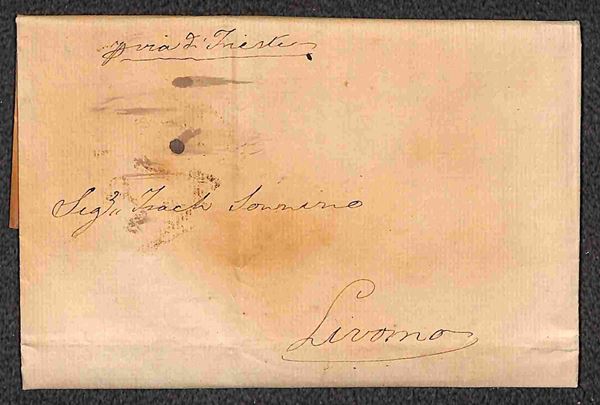 p via di Trieste
Sigr. Isach Sonnino
Livorno